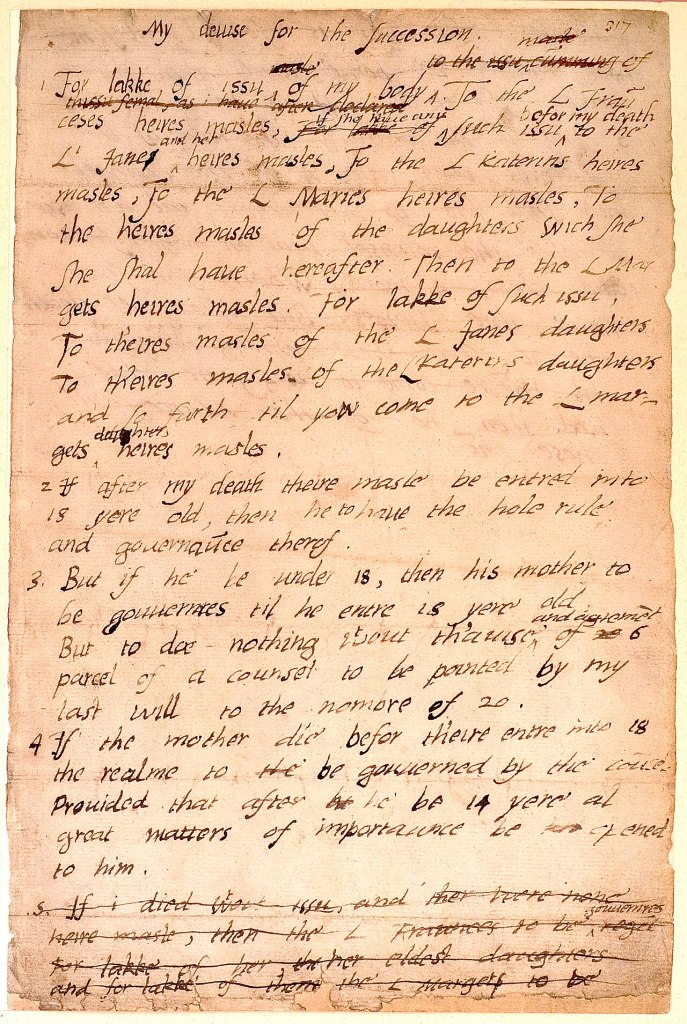 My deuise for the succession.
317
masle
to the issu cumming of
masle
1 For lakke of issu of my body. To the L Fraū
thissu femal, as i haue after declared
if she haue any
befor my death
ceses heires masles, For lakke of such issu to the
and her
L' Janes heires masles, To the L Katerins heires
masles, To the L Maries heires masles, To
the heires masles of the daughters wich she
she shal haue hereafter. Then to the L Mar
gets heires masles. For lakke of such issu,
To theires masles of the L Janes daughters
To theires masles of the L Katerins daughters
and so furth til yow come to the L mar-
daughters
gets heires masles.
2 If after my death theire masle be entred into
18 yere old, then he to haue the hole rule
and gouernaūce therof.
3. But if he be under 18, then his mother to
be gouuernres til he entre 18 yere old
and agremēt
But to doe nothing wout th'auise of 6
parcel of a counsel to be pointed by my
last will to the nombre of 20.
4 If the mother die befor theire entre into 18
the realme to the be gouuerned by the coūs.
Prouided that after he be 14 yere al
great matters of importaunce be opened
to him.
5. If i died wout issu, and ther were none
gouuernres
heire masle, then the L Fraunces to be regēt
For lakke of her, the her eldest daughters
and for lakke of them the L Margets to be